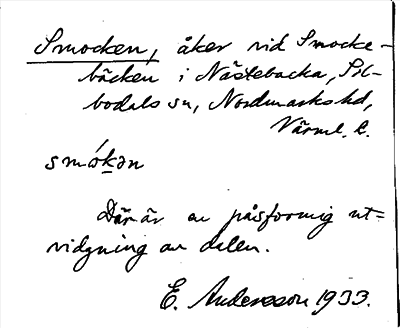 Smocken, åker vid Smocke-
bäcken i Nästebacka, Sil-
bodals sn, Nordmarks hd,
Värml. l.
smókən
Där är en påsformig ut=
vidgning av dalen.
E. Andersson 1933.